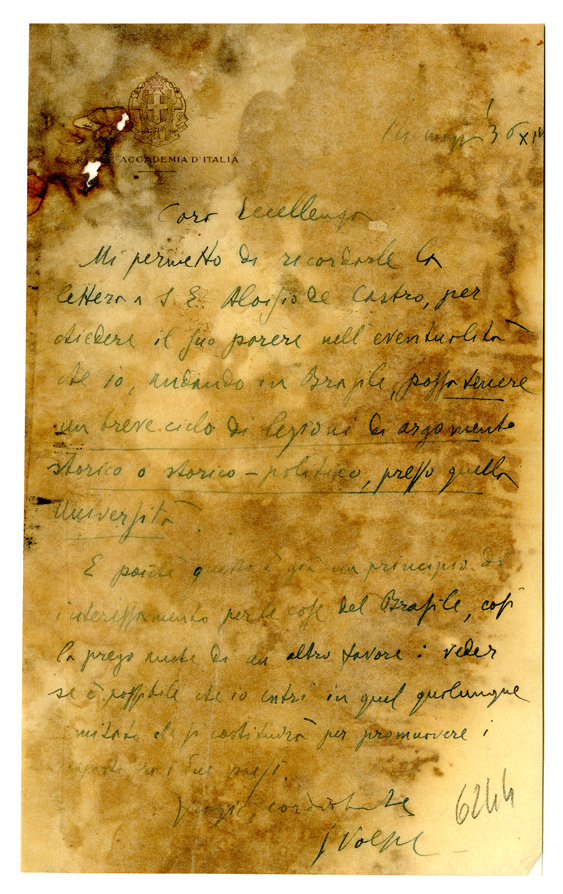 ACCADEMIA D'ITALIA
Caro Eccellenza
Mi permetto di ricordarle la
lettera a S. E. Aloisio de Castro, per
chiedere il suo parere nell'eventualità
che io, andando in Brasile, possa tenere
un breve ciclo di lezioni di argomento
storico o storico-politico, presso quella
Università.
E poichè questo è già un principio di
interessamento per le cose del Brasile, così
la prego anche di un altro favore: veder
se è possibile che io entri in quel qualunque
comitato che si costituirà per promuovere i
rapporti fra i due paesi.
Grazie, cordialmente
G Volpe
6244